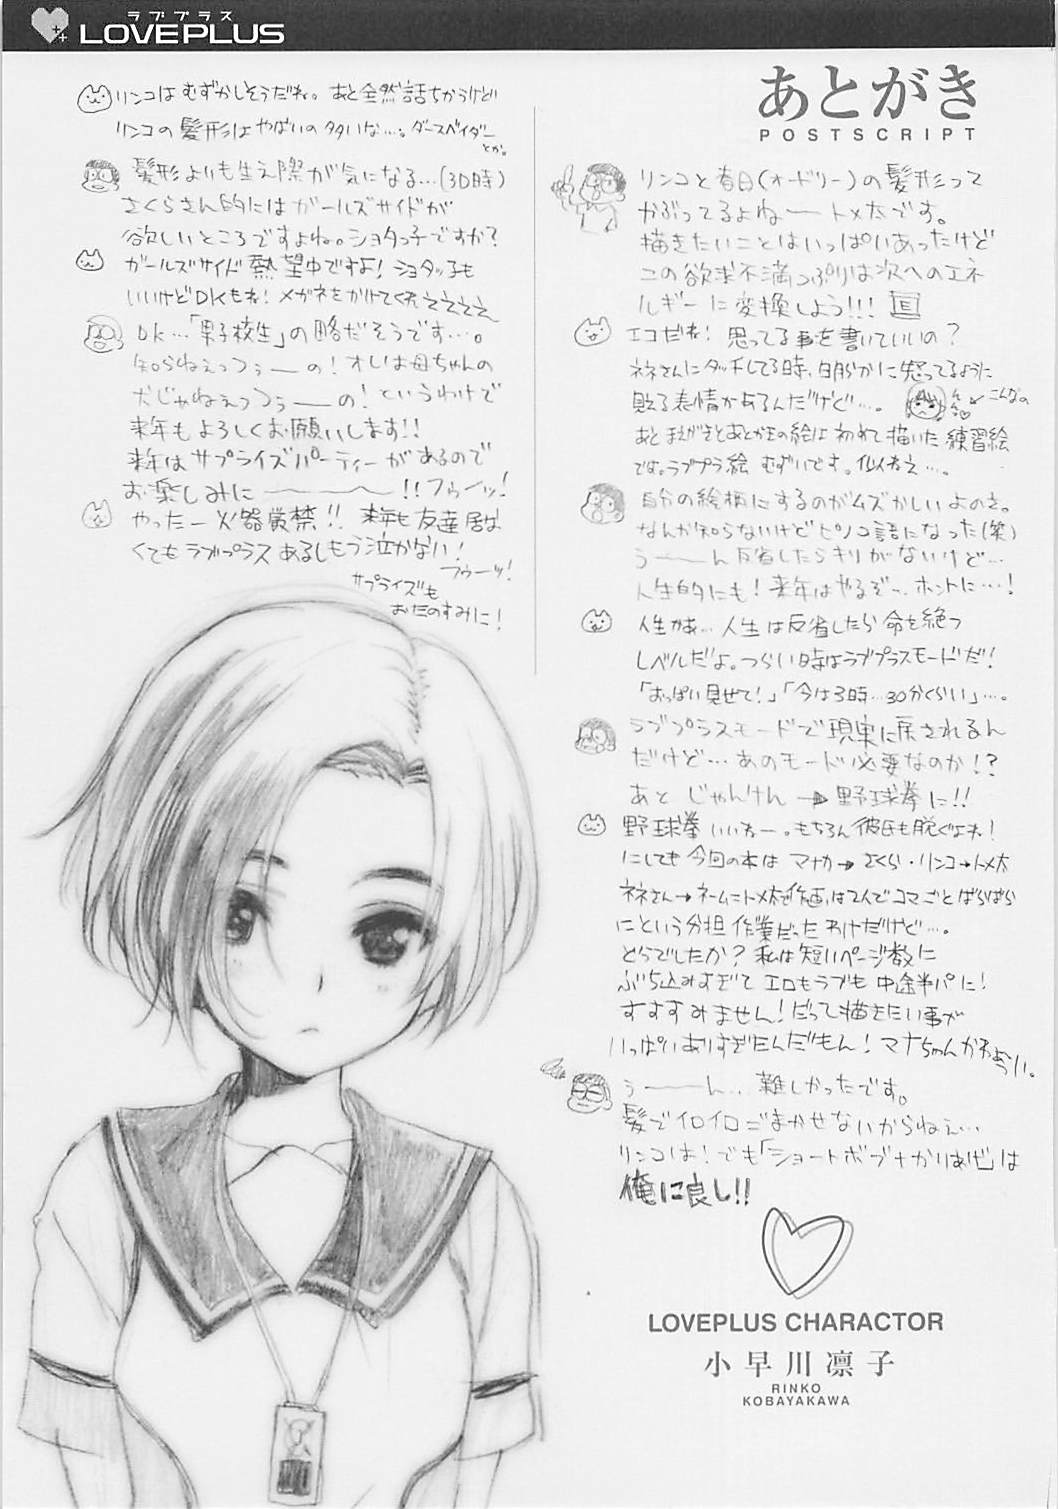 ラブプラス
LOVEPLUS
あとがき
POSTSCRIPT
リンコと春日(オードリー)の髪形って
かぶってるよねートメ太です。
描きたいことはいっぱいあったけど
この欲求不満っぷりは次へのエネ
ルギーに変換しよう!!!
エコだね!思ってる事を書いていいの?
ネネさんにタッチしてる時、明らかに怒ってるように
見える表情があるんだけど…。
こんなの
あとまえがきとあとがきの絵は初めて描いた練習絵
です。ラブプラ絵むずいです。似ねえ…。
自分の絵柄にするのがムズかしいよのさ。
なんか知らないけどピノコ語になった(笑)
うーーん反省したらキリがないけど…
人生的にも!来年はやるぞッ、ホントに…!
人生かぁ…人生は反省したら命を絶つ
レベルだよ。つらい時はラブプラスモードだ!
「おっぱい見せて!」「今は3時…30分くらい」…。
ラブプラスモードで現実に戻されるん
だけど…あのモード必要なのか!?
あと じゃんけん→野球拳に!!
野球拳いいねー。もちろん彼氏も脱ぐよね!
にしても今回の本は マナカ→さくら・リンコ→トメ太
ネネさん→ネームにトメ太で作画は2人でコマごとばらばら
にという分担作業だったわけだけど…。
どうでしたか?私は短いページ数に
ぶち込みすぎて エロもラブも中途半パに!
すすすみません!だって描きたい事が
いっぱいありすぎたんだもん!マナちゃんかわよういい。
うーーーん…難しかったです。
髪でイロイロごまかせないからねぇ…
リンコは!でも「ショートボブ+かりあげ」は
俺に良し!!
リンコはむずかしそうだね。あと全然話ちがうけど
リンコの髪形はやばいの多いな…。ダースベイダー
とか。
髪形よりも生え際が気になる…(3D時)
さくらさん的にはガールズサイドが
欲しいところですよね。ショタっ子ですか?
ガールズサイド熱望中ですよ!ショタッ子も
いいけどDKもね!メガネをかけてくれえええええ
DK…「男子校生」の略だそうです…。
知らねえっつぅーの!オレは母ちゃんの
犬じゃねえっつぅーの!というわけで
来年もよろしくお願いします!!
来年はサプライズパーティーがあるので
お楽しみに〜〜〜!!フゥーッ!
やったー火器厳禁!!来年も友達居な
くてもラブプラスあるしもう泣かない!
フゥーッ!
サプライズも
おたのすみに!
LOVEPLUS CHARACTOR
小早川凛子
RINKO
KOBAYAKAWA